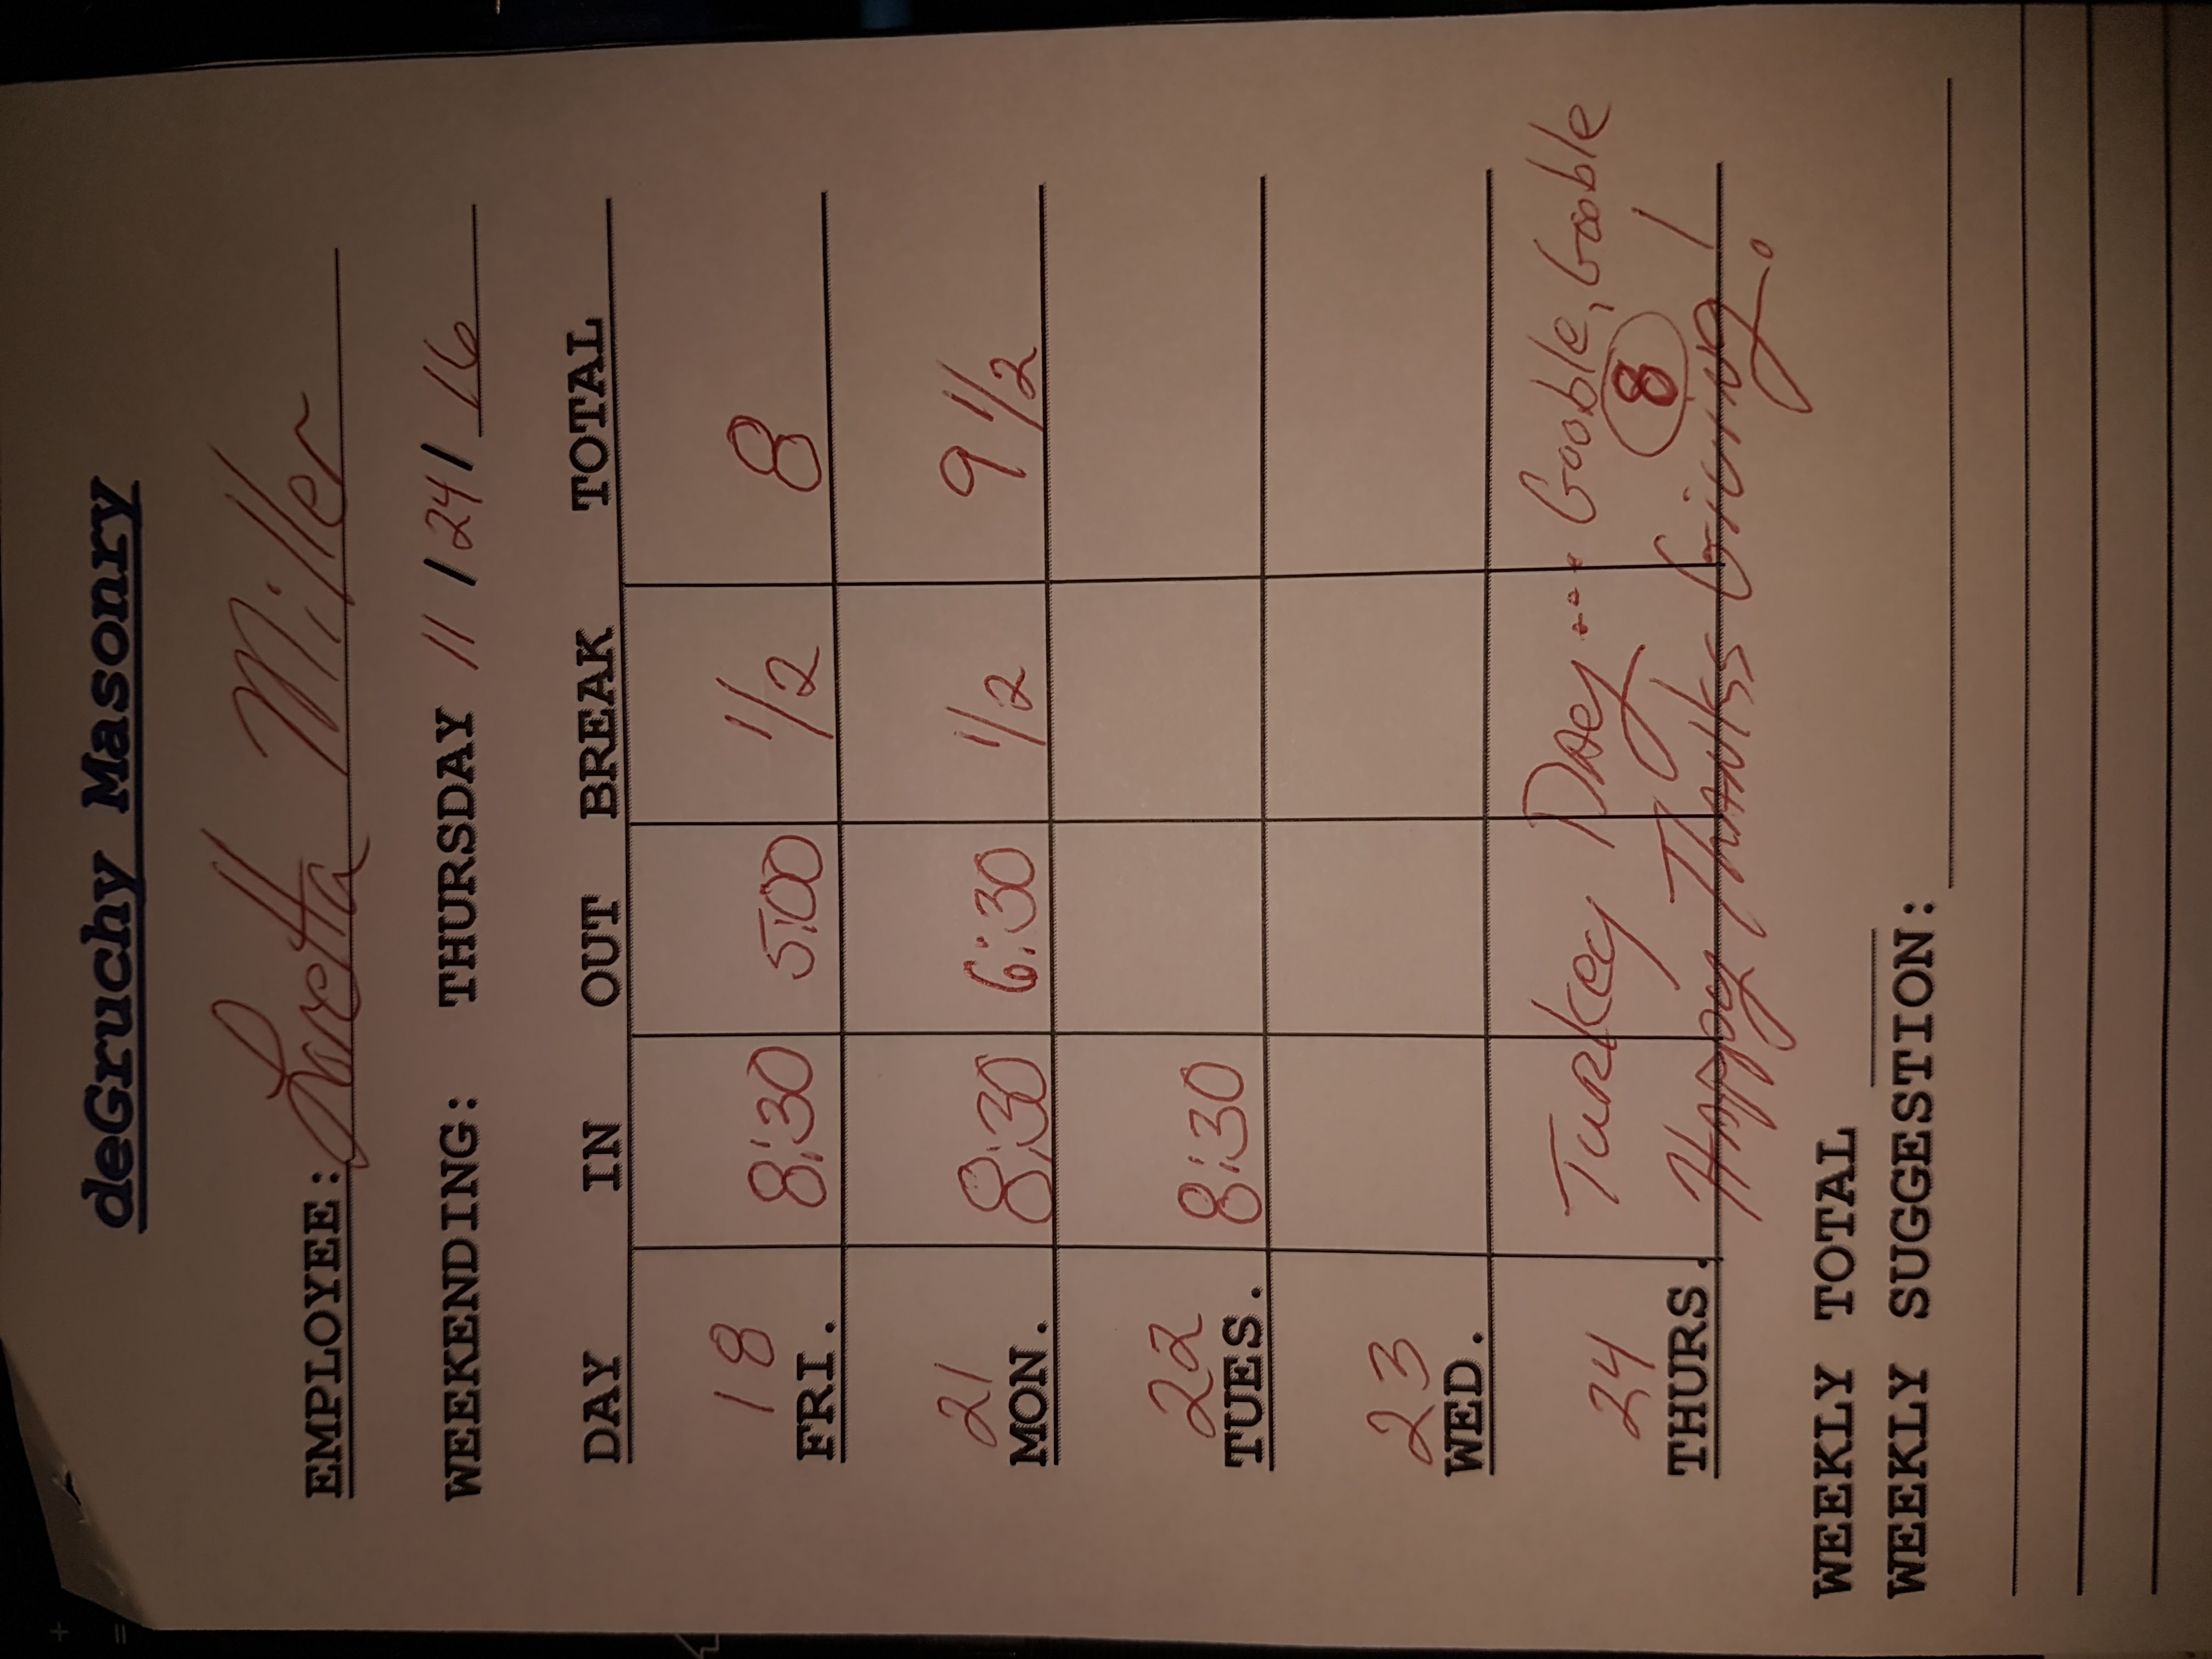 deGruchy Masonry
EMPLOYEE: Loretta Miller
WEEKENDING: THURSDAY 11 / 24 / 16
DAY IN OUT BREAK TOTAL
18
FRI. 8:30 5:00 1/2 8
21
MON. 8:30 6:30 1/2 9 1/2
22
TUES. 8:30
23
WED.
Turkey Day --- Gooble, Gooble
24 8
THURS. Happy Thanks Giving!
WEEKLY TOTAL
WEEKLY SUGGESTION: